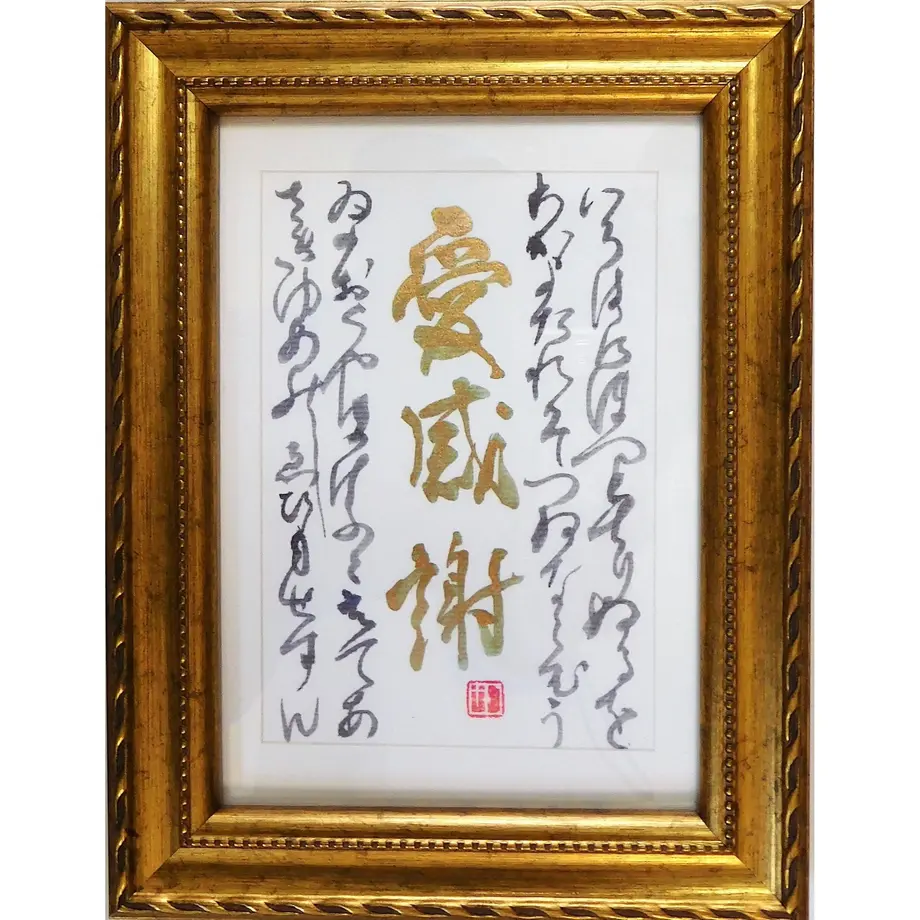 いろはにほへとちりぬるを
わかよたれそつねならむう
愛感謝
ゐのおくやまけふこえてあ
さきゆめみしゑひもせすん